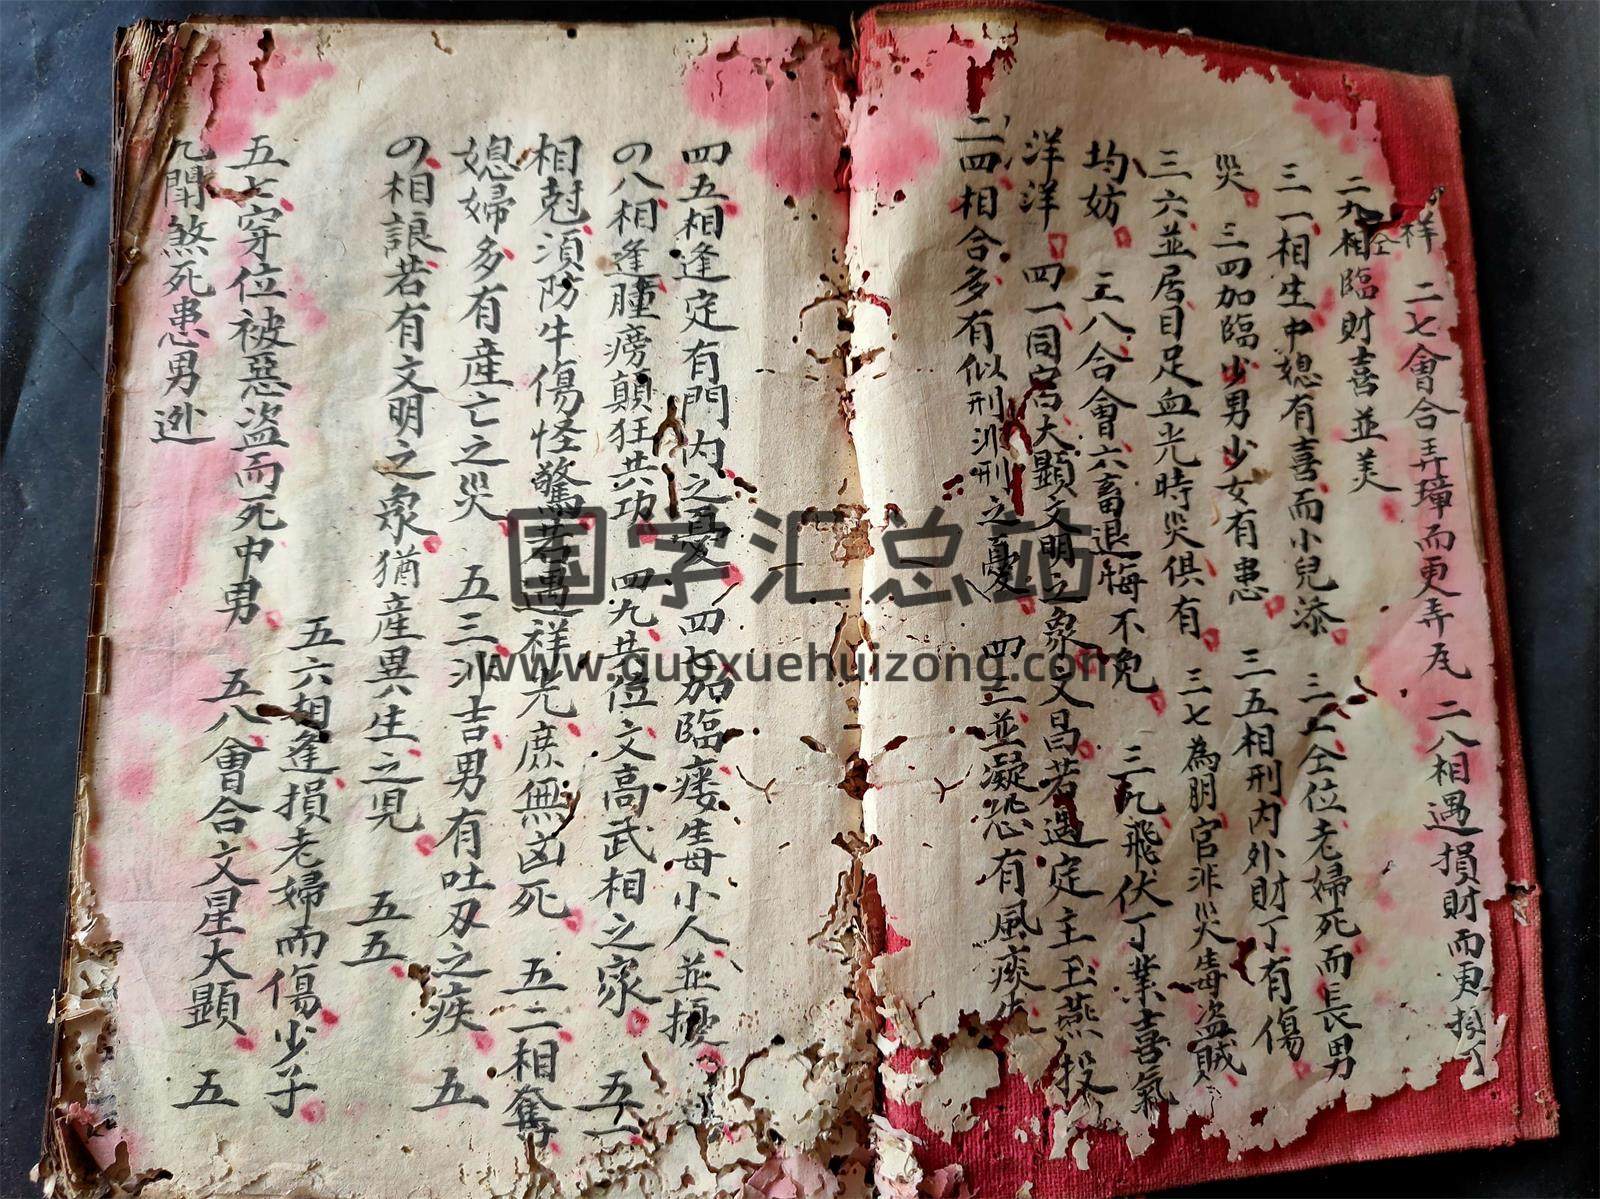 祥 二七會合弄璋而更弄瓦 二八相遇損財而更損丁
二九相臨財喜並美
三一相生中媳有喜而小兒添 三二仝位老婦死而長男
災 三四加臨少男少女有患 三五相刑内外財丁有傷
三六並居目足血光時災俱有 三七為朋官非災毒盗賊
均妨 三八合會六畜退悔不免 三九飛伏丁業喜氣
洋洋 四一同宮大顯文明之象文昌若遇定主玉燕投
二四相合多有似刑非刑之憂 四三並凝恐有風痰
四五相逢定有門内之憂 四七加臨痿毒小人並擾
の八相逢腫痨顛狂共功 四九共位文高武相之家 五一
相尅須防牛傷怪驚若遇祥光庶無凶死 五二相奪
媳婦多有産亡之災 五三非吉男有吐刃之疾 五
の相誏若有文明之象猶産異生之児 五五
五六相逢損老婦而傷少子
五七穿位被惡盗而死中男 五八會合文星大顕 五
九閗煞死患男逊
国学汇总站
www.guoxuehuizong.com